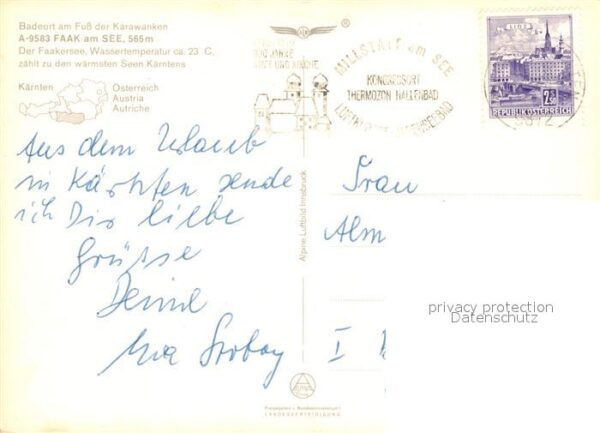 Badeort am Fuß der Karawanken
A-9583 FAAK am SEE, 565m
Der Faakersee, Wassertemperatur ca. 23 C.
zählt zu den wärmsten Seen Kärntens
Kärnten
Österreich
Austria
Autriche
®
MILLSTATT am SEE
KONGRESSORT
THERMOZON HALLENBAD
LINZ
2.50
REPUBLIK ÖSTERREICH
9872
Aus dem Urlaub
in Kärnten sende
ich Dir liebe
Grüsse
Deine
Eva
Frau
Alm
I
Alpine Luftbild Innsbruck
privacy protection
Datenschutz
LANDESVERTEIDIGUNG